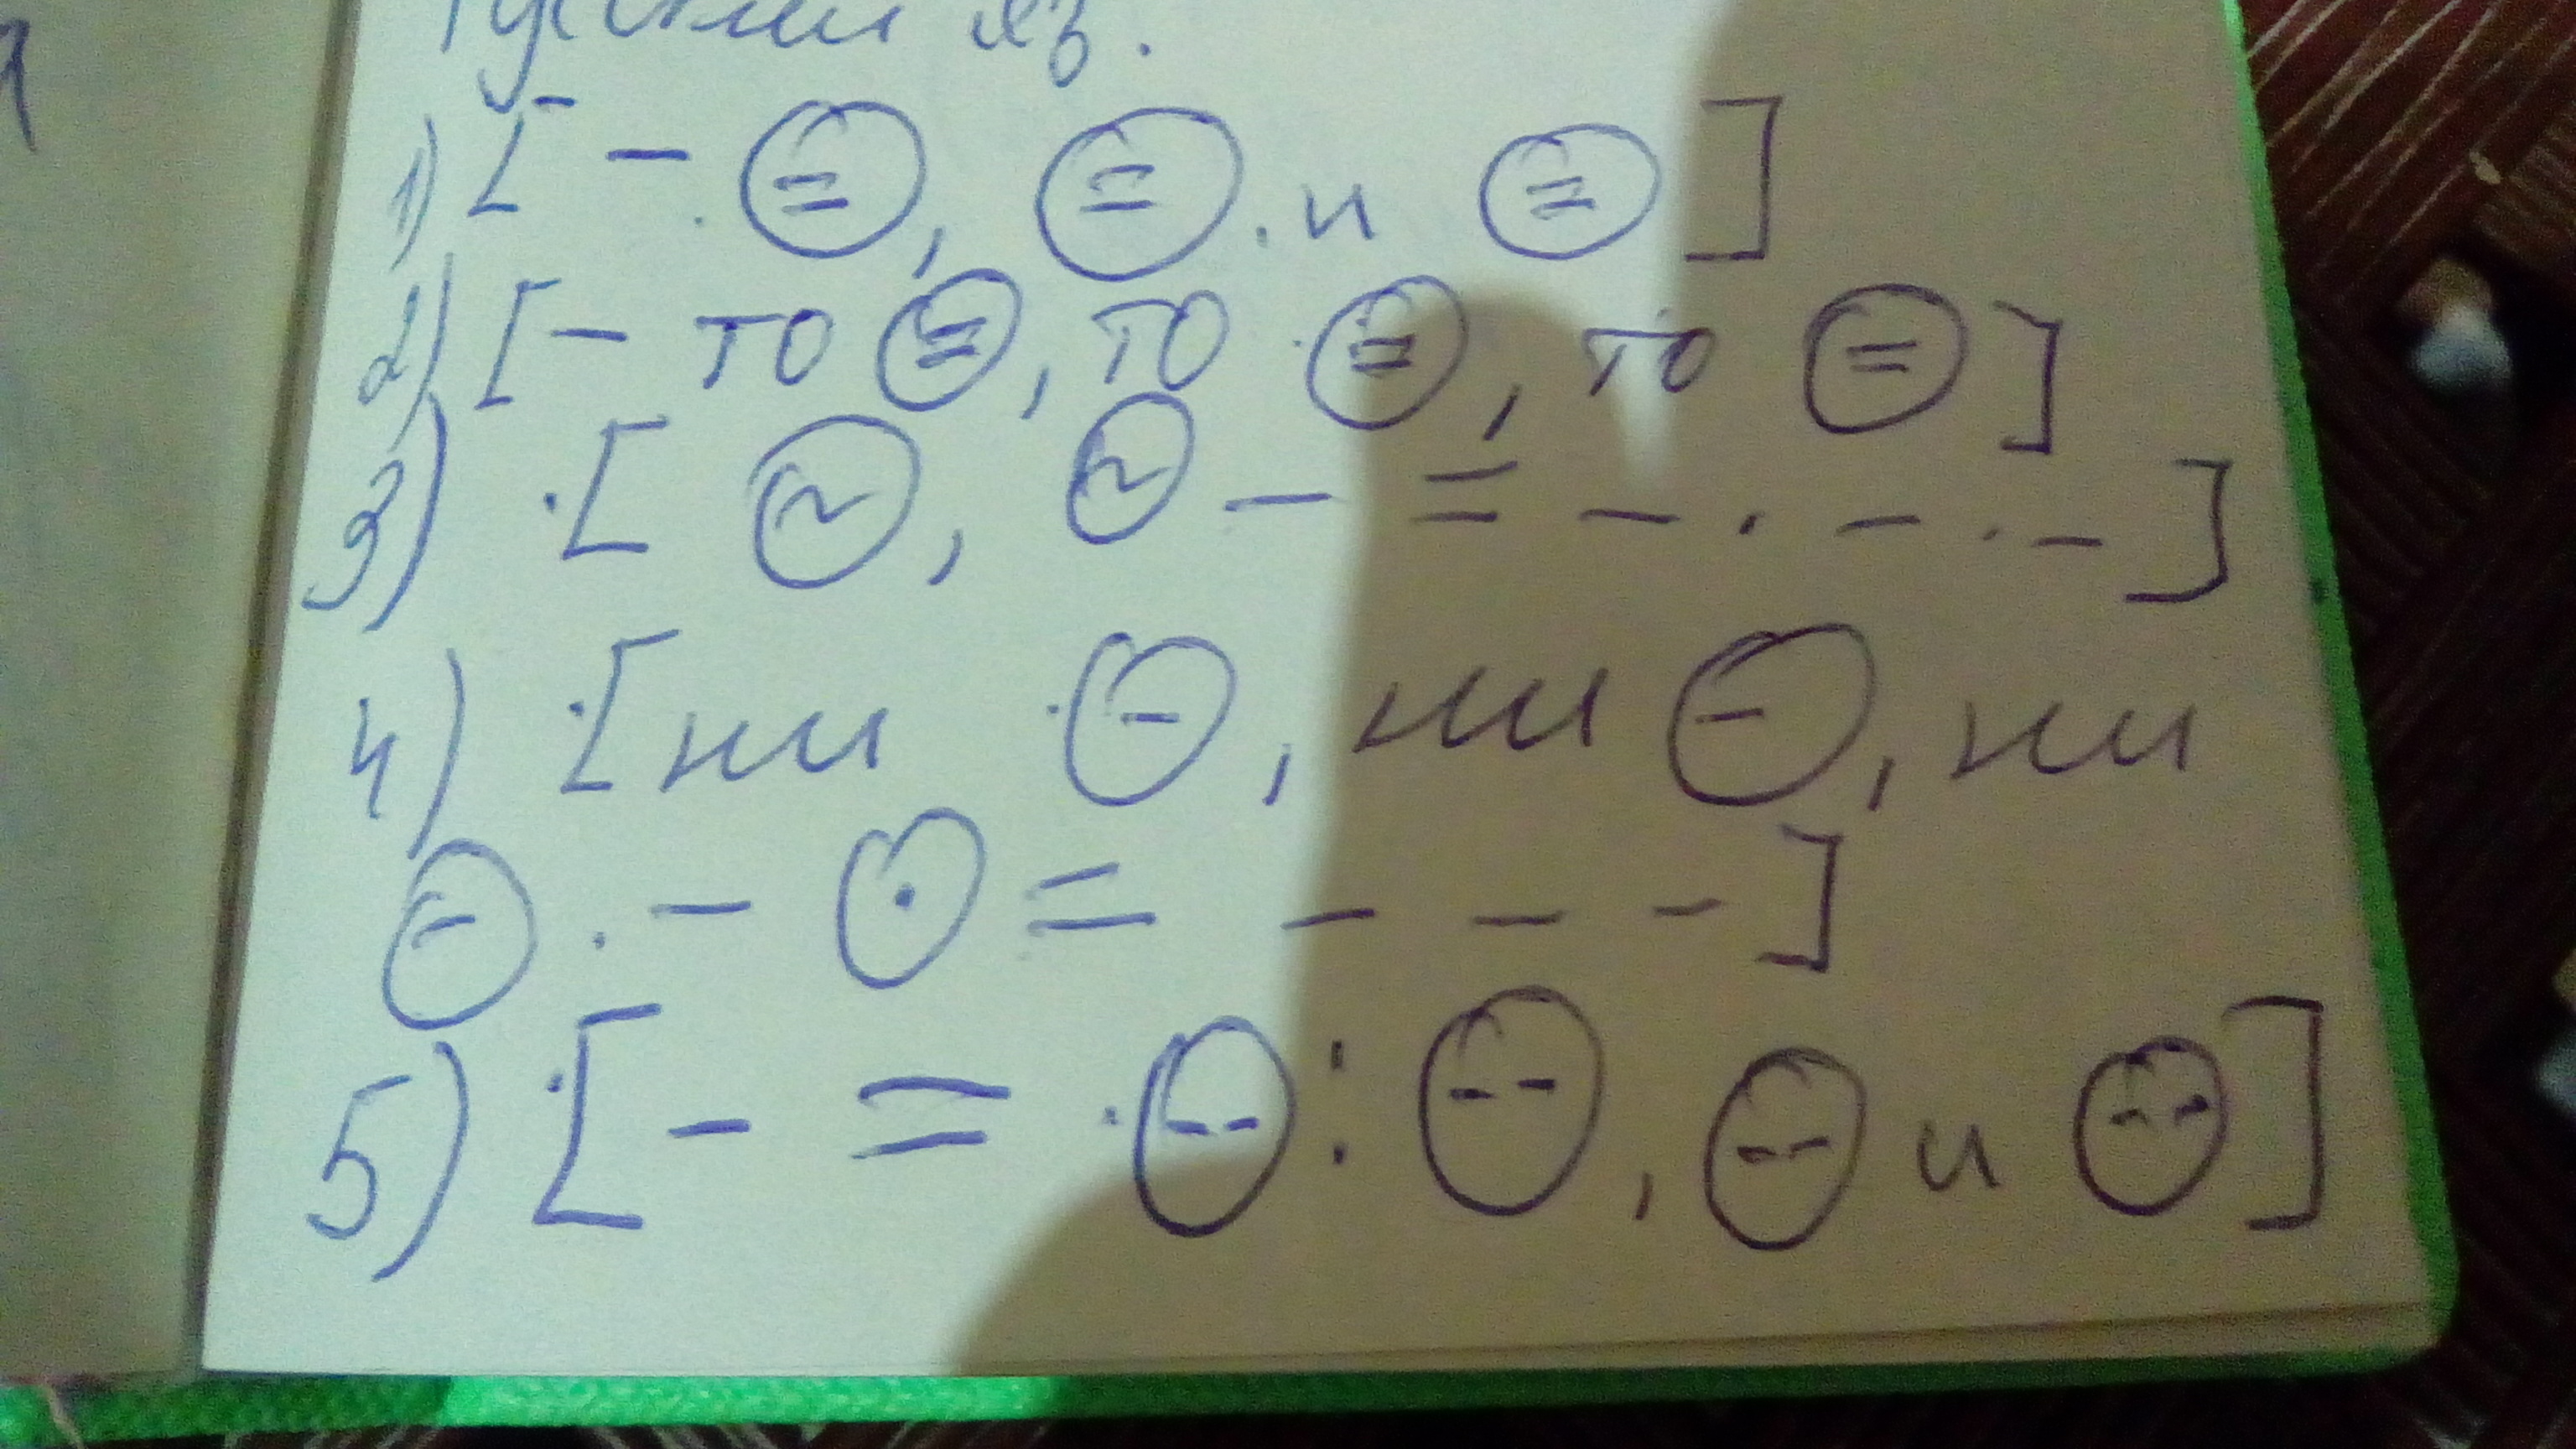 Русский яз.
1) [ – (=), (=) и (=) ]
2) [ – то (=), то (=), то (=) ]
3) [ (~), (~) – = – . – . – ]
4) [ ни (–), ни (–), ни
(–) . – (·) = – – – ]
5) [ – = (– –) : (– –), (– –) и (– –) ]